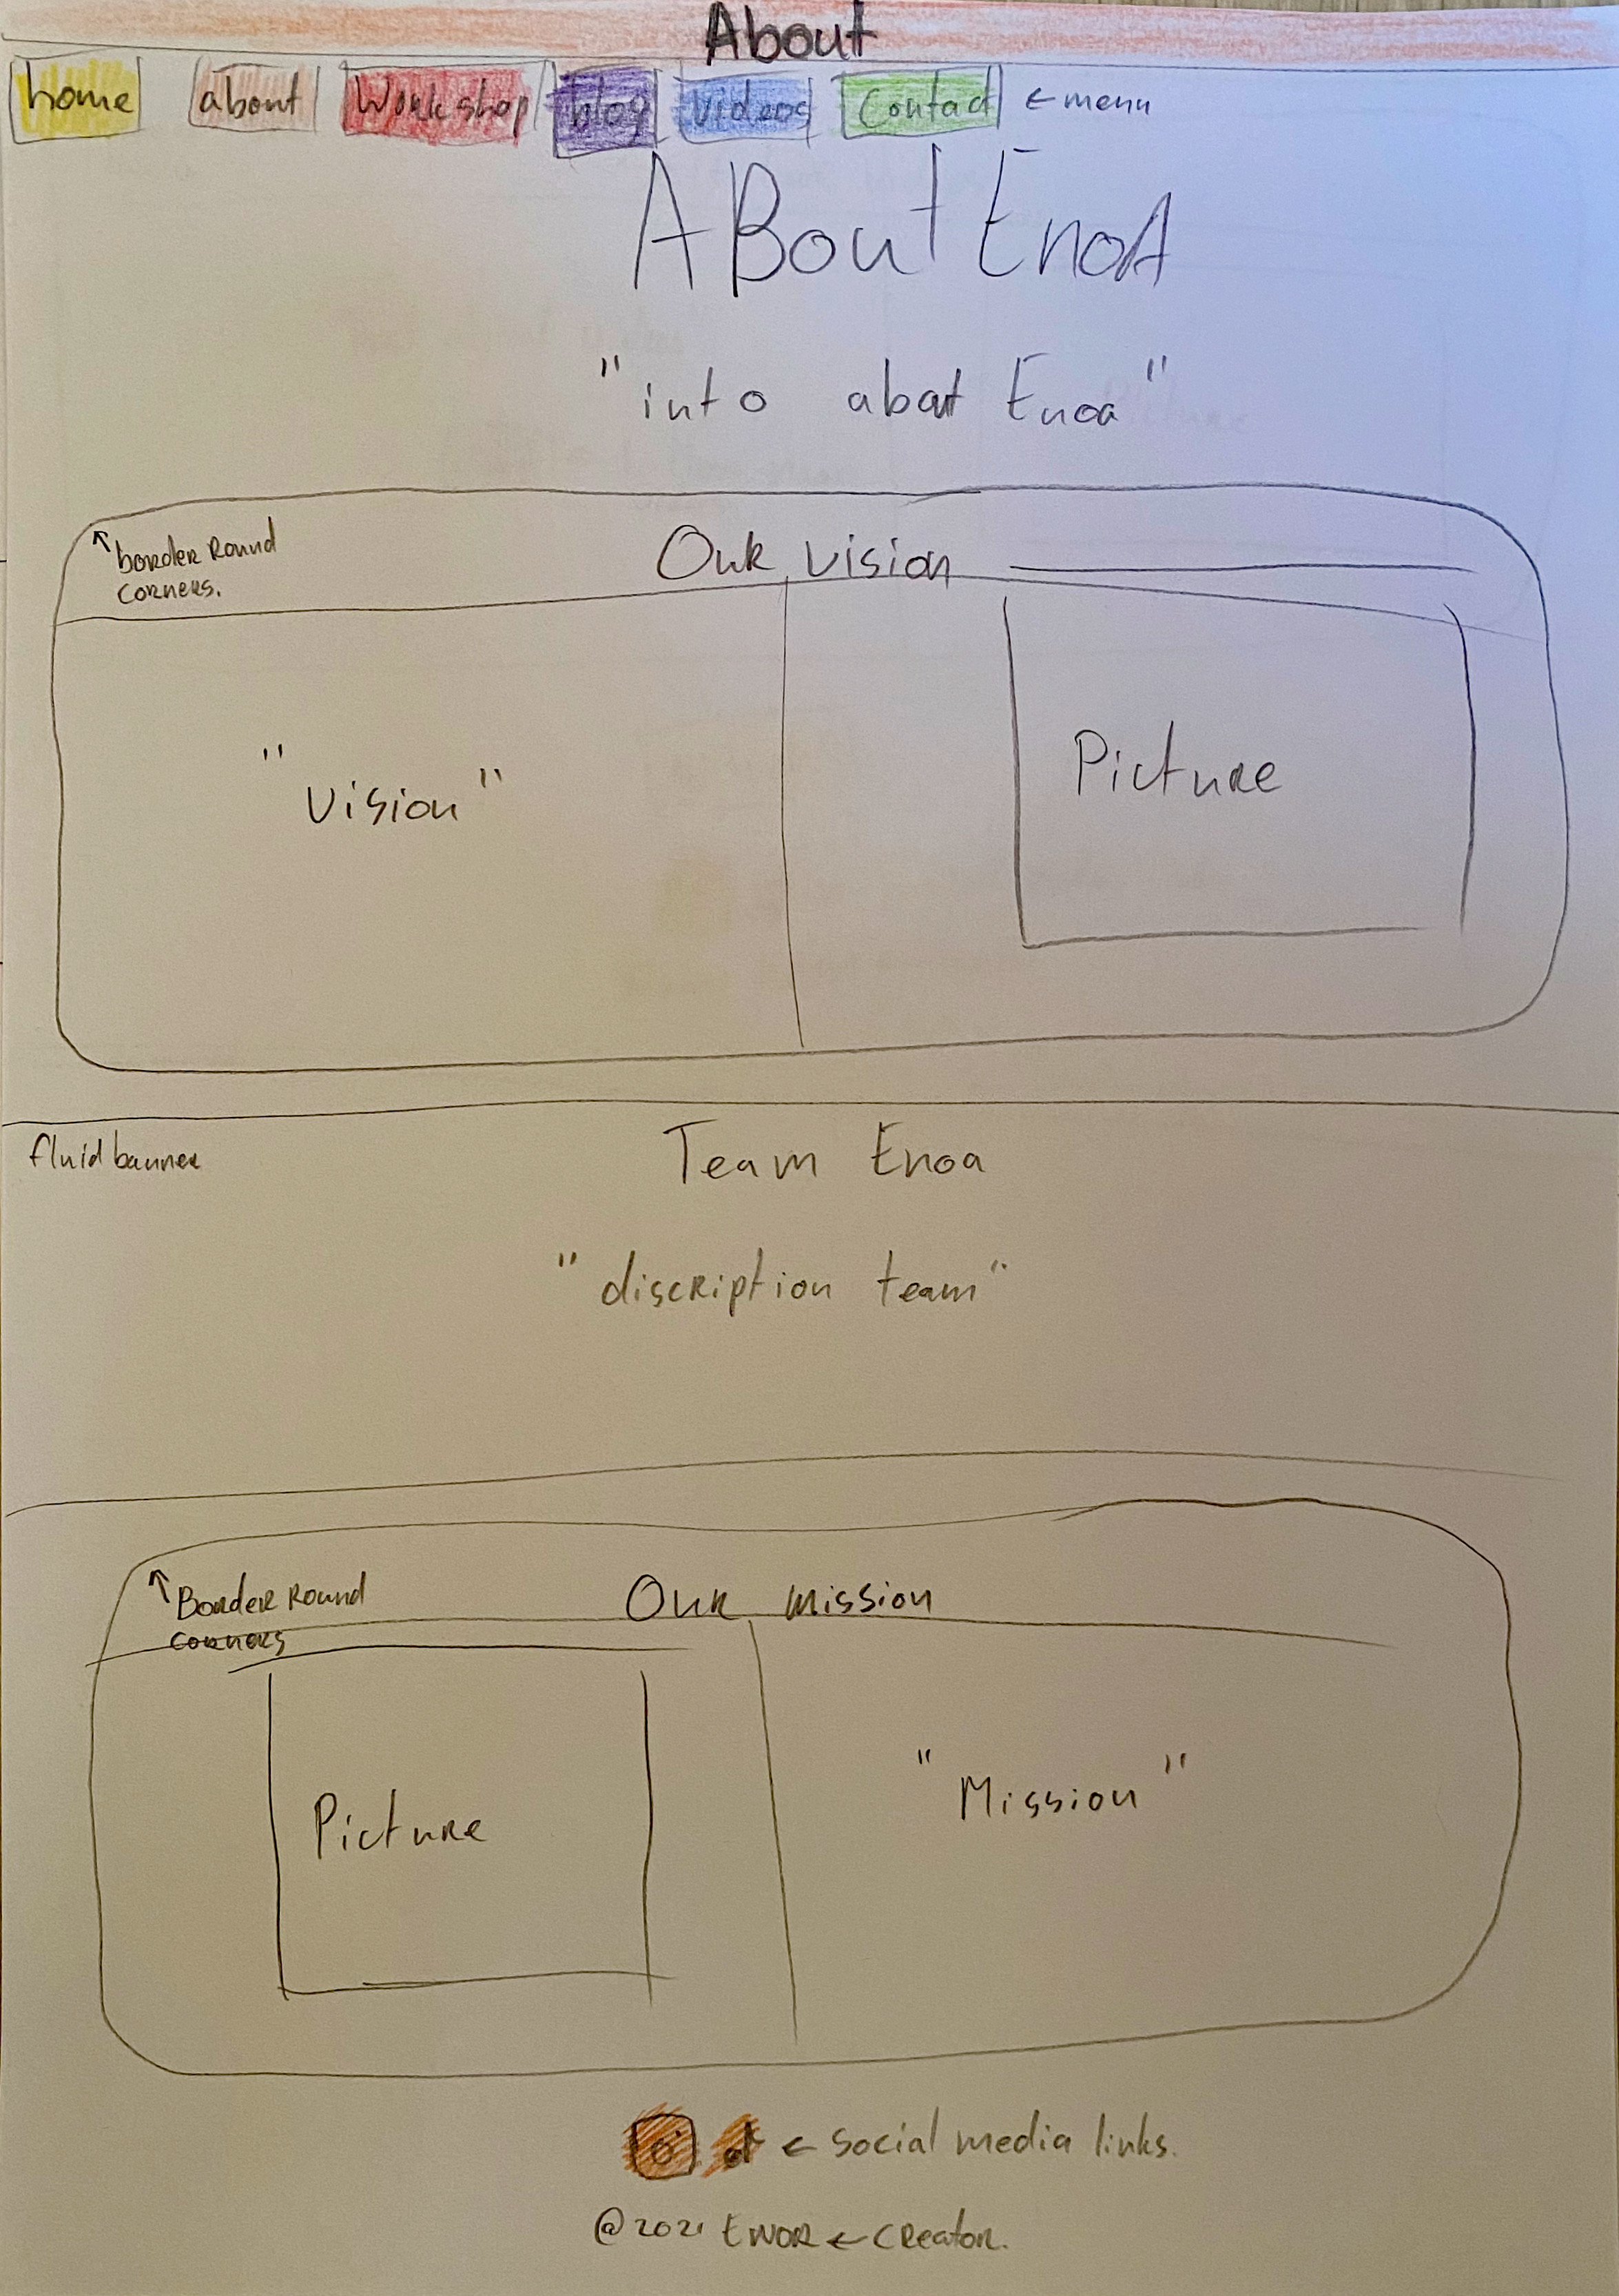 About
home about Workshop blog videos Contact ← menu
About Enoa
"into about Enoa"
border Round
corners.
Our vision
"Vision"
Picture
fluid banner
Team Enoa
"discription team"
Border Round
corners
Our mission
Picture
"Mission"
← social media links.
@2021 Enoa ← Creator.